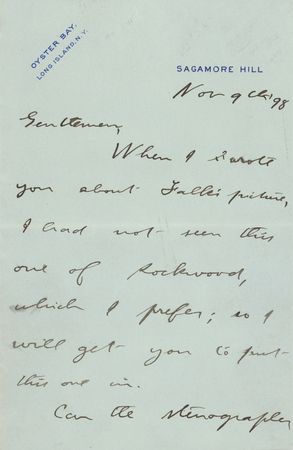 OYSTER BAY,
LONG ISLAND, N.Y.
SAGAMORE HILL
Nov 9th 98
Gentlemen,
When I wrote
you about Falk's picture,
I had not seen this
one of Rockwood,
which I prefer; so I
will get you to put
this one in.
Can the stenographer